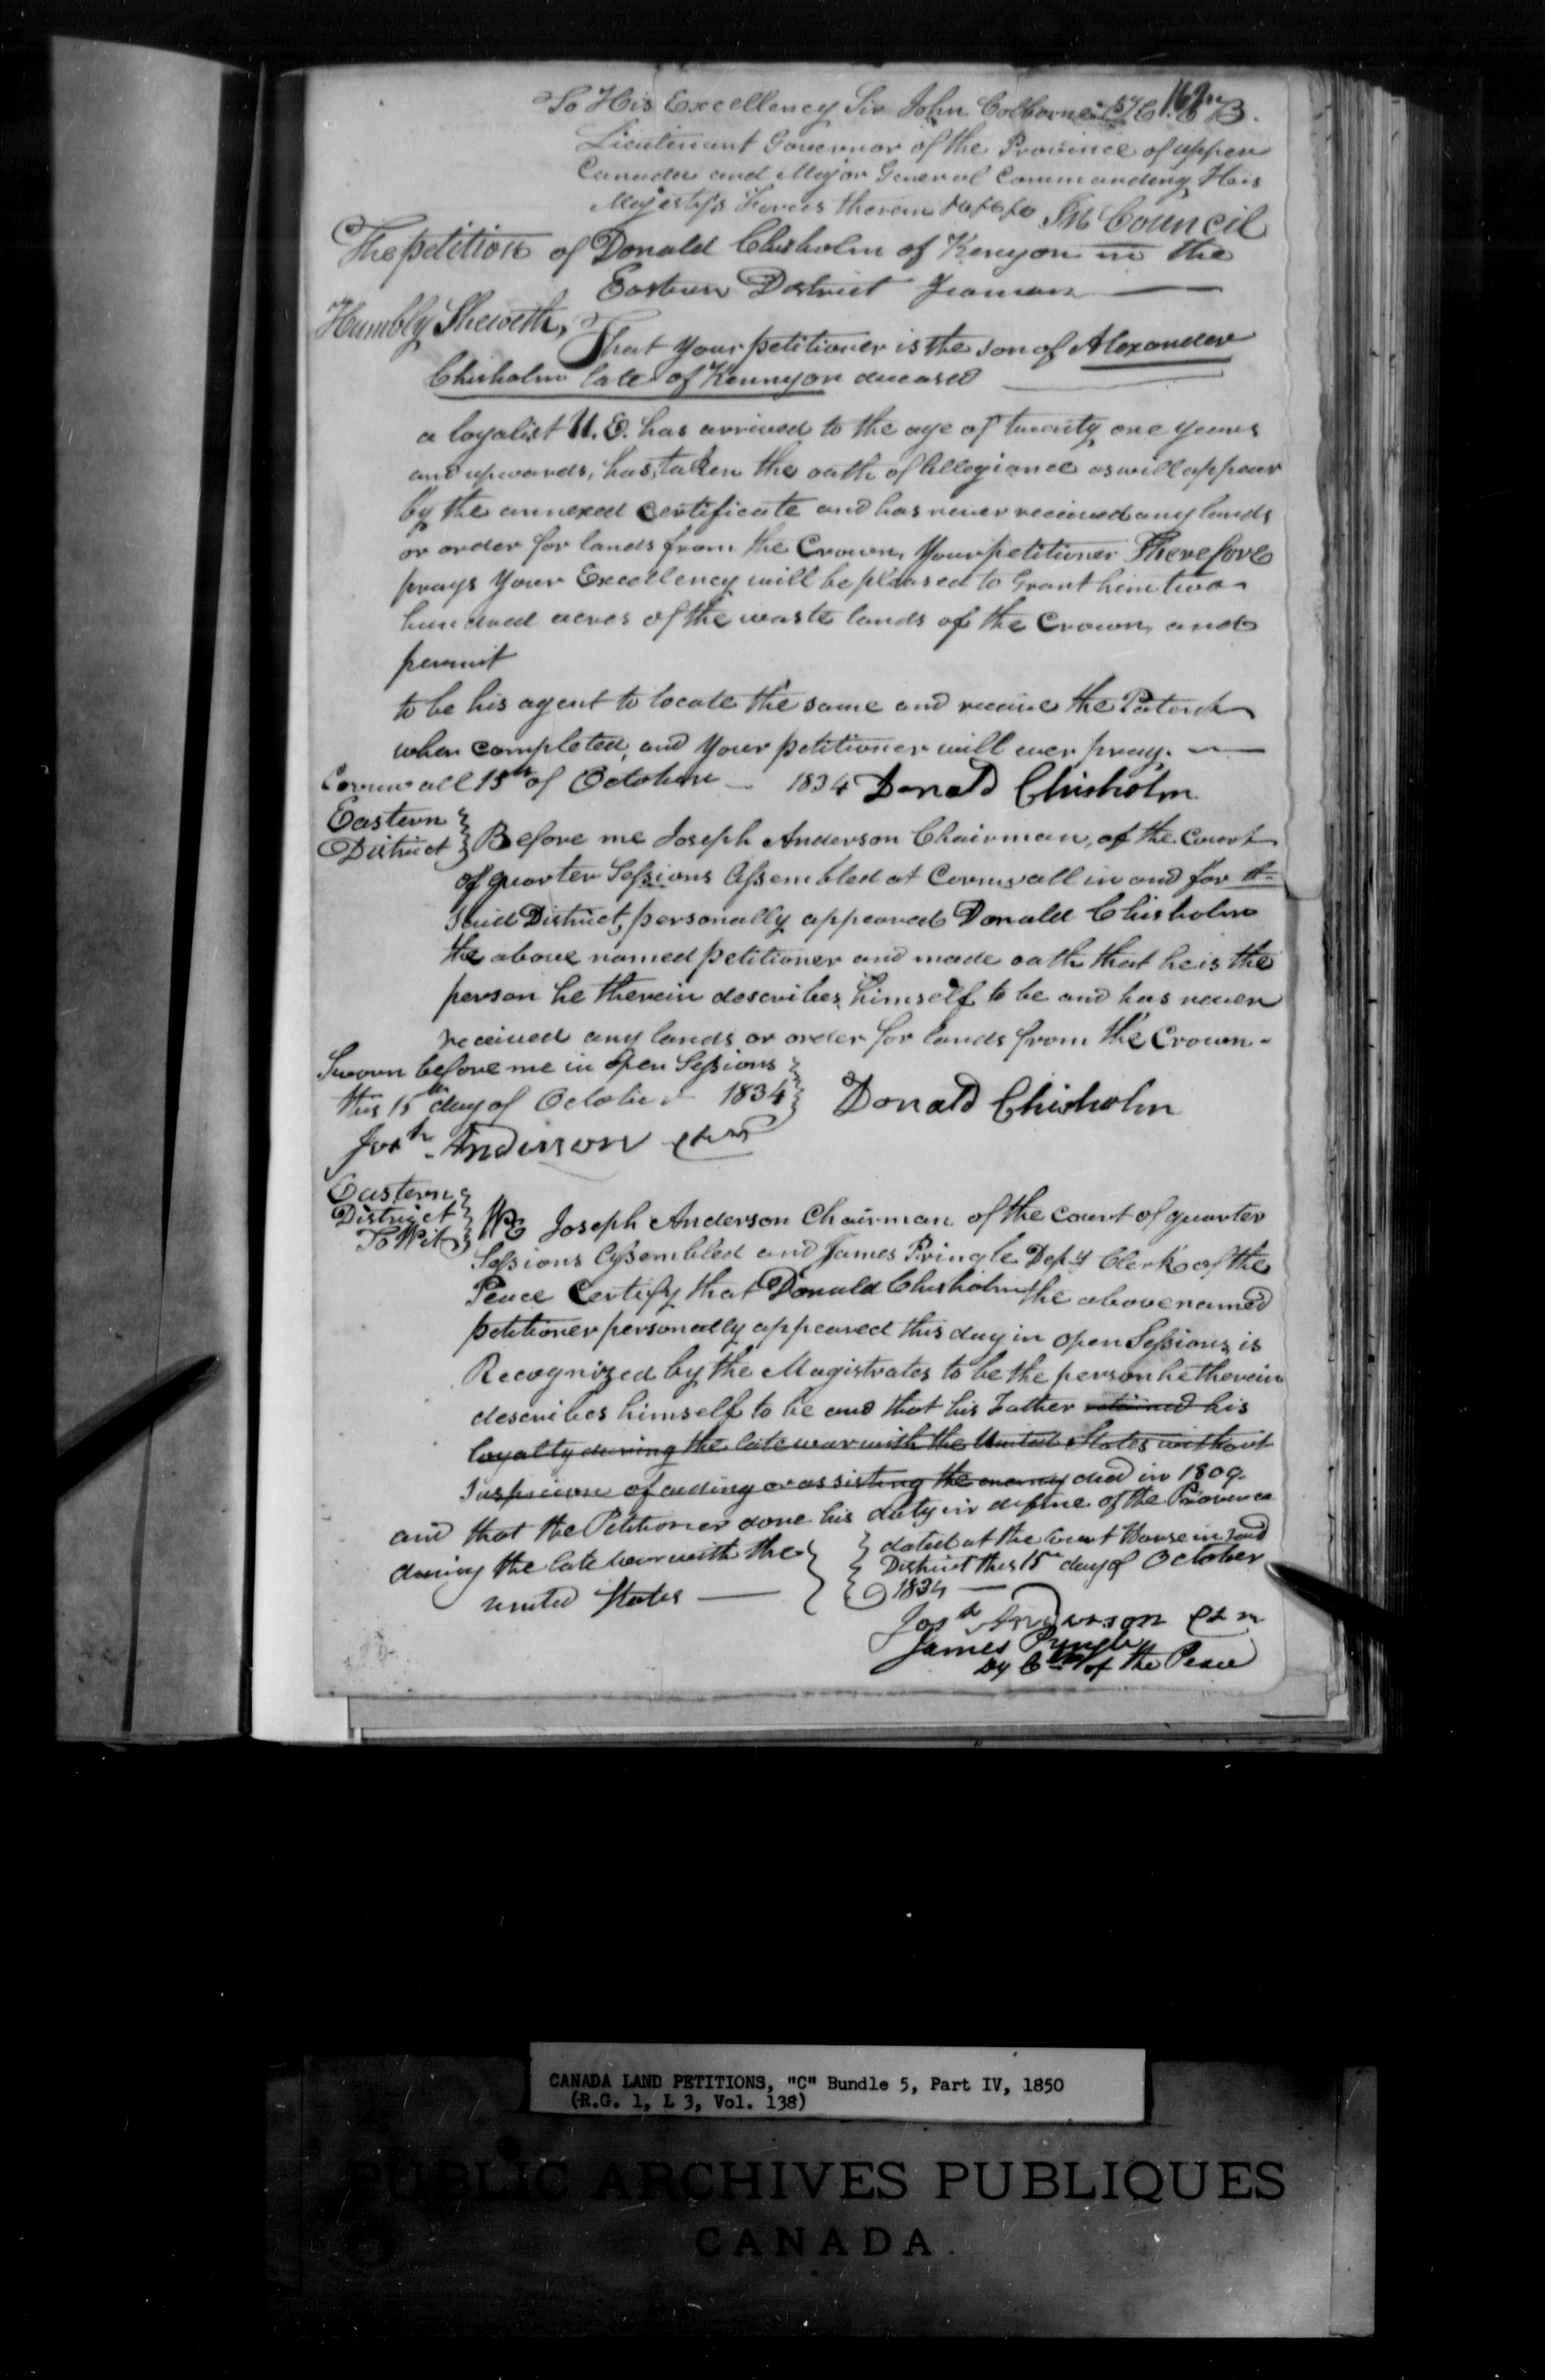 169
To His Excellency Sir John Colborne K.C.B.
Lieutenant Governor of the Province of upper
Canada and Major General Commanding His
Majesty's Forces therein In Council
The petition of Donald Chisholm of Kenyon in the
Eastern District Yeoman
Humbly Sheweth,
That your petitioner is the son of Alexander
Chisholm late of Kennyon deceased
a loyalist U.E. has arrived to the age of twenty one years
and upwards, has taken the oath of Allegiance as will appear
by the annexed Certificate and has never received any lands
or order for lands from the Crown, Your petitioner Therefore
prays Your Excellency will be pleased to Grant him two
hundred acres of the waste lands of the Crown, and
permit
to be his agent to locate the same and receive the Patent
when completed, and Your petitioner will ever pray.
Cornwall 15th of October 1834 Donald Chisholm
Eastern
District } Before me Joseph Anderson Chairman, of the Court
of quarter Sessions Assembled at Cornwall in and for th
said District, personally appeared Donald Chisholm
the above named petitioner and made oath that he is the
person he therein describes himself to be and has never
received any lands or order for lands from the Crown.
Sworn before me in Open Sessions
this 15th day of October 1834 } Donald Chisholm
Josh. Anderson Chn
Eastern
District
To Wit } We Joseph Anderson Chairman of the Court of quarter
Sessions Assembled and James Pringle Depy Clerk of the
Peace Certify that Donald Chisholm the above named
petitioner personally appeared this day in open Sessions, is
Recognized by the Magistrates to be the person he therein
describes himself to be and that his Father retained his
loyalty during the late war with the United States without
Suspicion of aiding or assisting the enemy died in 1809
and that the Petitioner done his duty in defence of the Province
during the late war with the
united States
dated at the Court House in said
District this 15th day of October
1834
Josh Anderson Chn
James Pringle
Dy Clk of the Peace
CANADA LAND PETITIONS, "C" Bundle 5, Part IV, 1850
(R.G. 1, L 3, Vol. 138)
PUBLIC ARCHIVES PUBLIQUES
CANADA